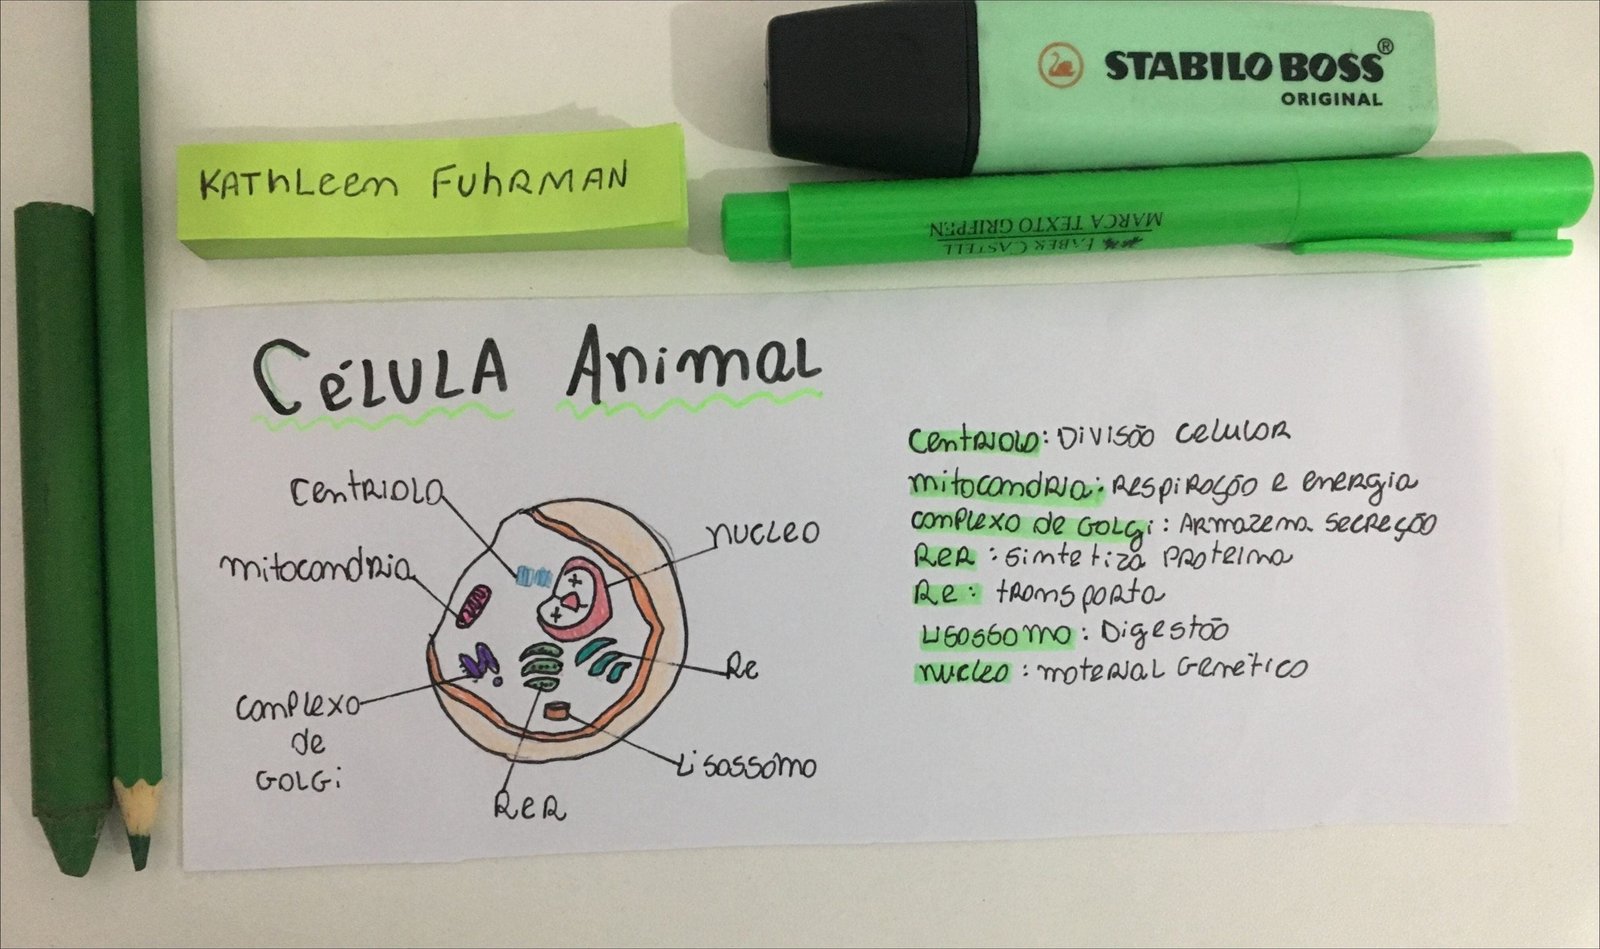 STABILO BOSS®
ORIGINAL
KATHLeen FUHRMAN
FABER CASTELL
MARCA TEXTO GRIFPEN
CÉLULA Animal
Centriolo
mitocondria
complexo
de
GOLGi
RER
nucleo
Re
Lisossomo
Centriolo: Divisão celular
mitocondria: Respiração e energia
complexo de GOLGi: Armazena secreção
RER: sintetiza proteina
Re: transporta
Lisossomo: Digestão
nucleo: material Genético